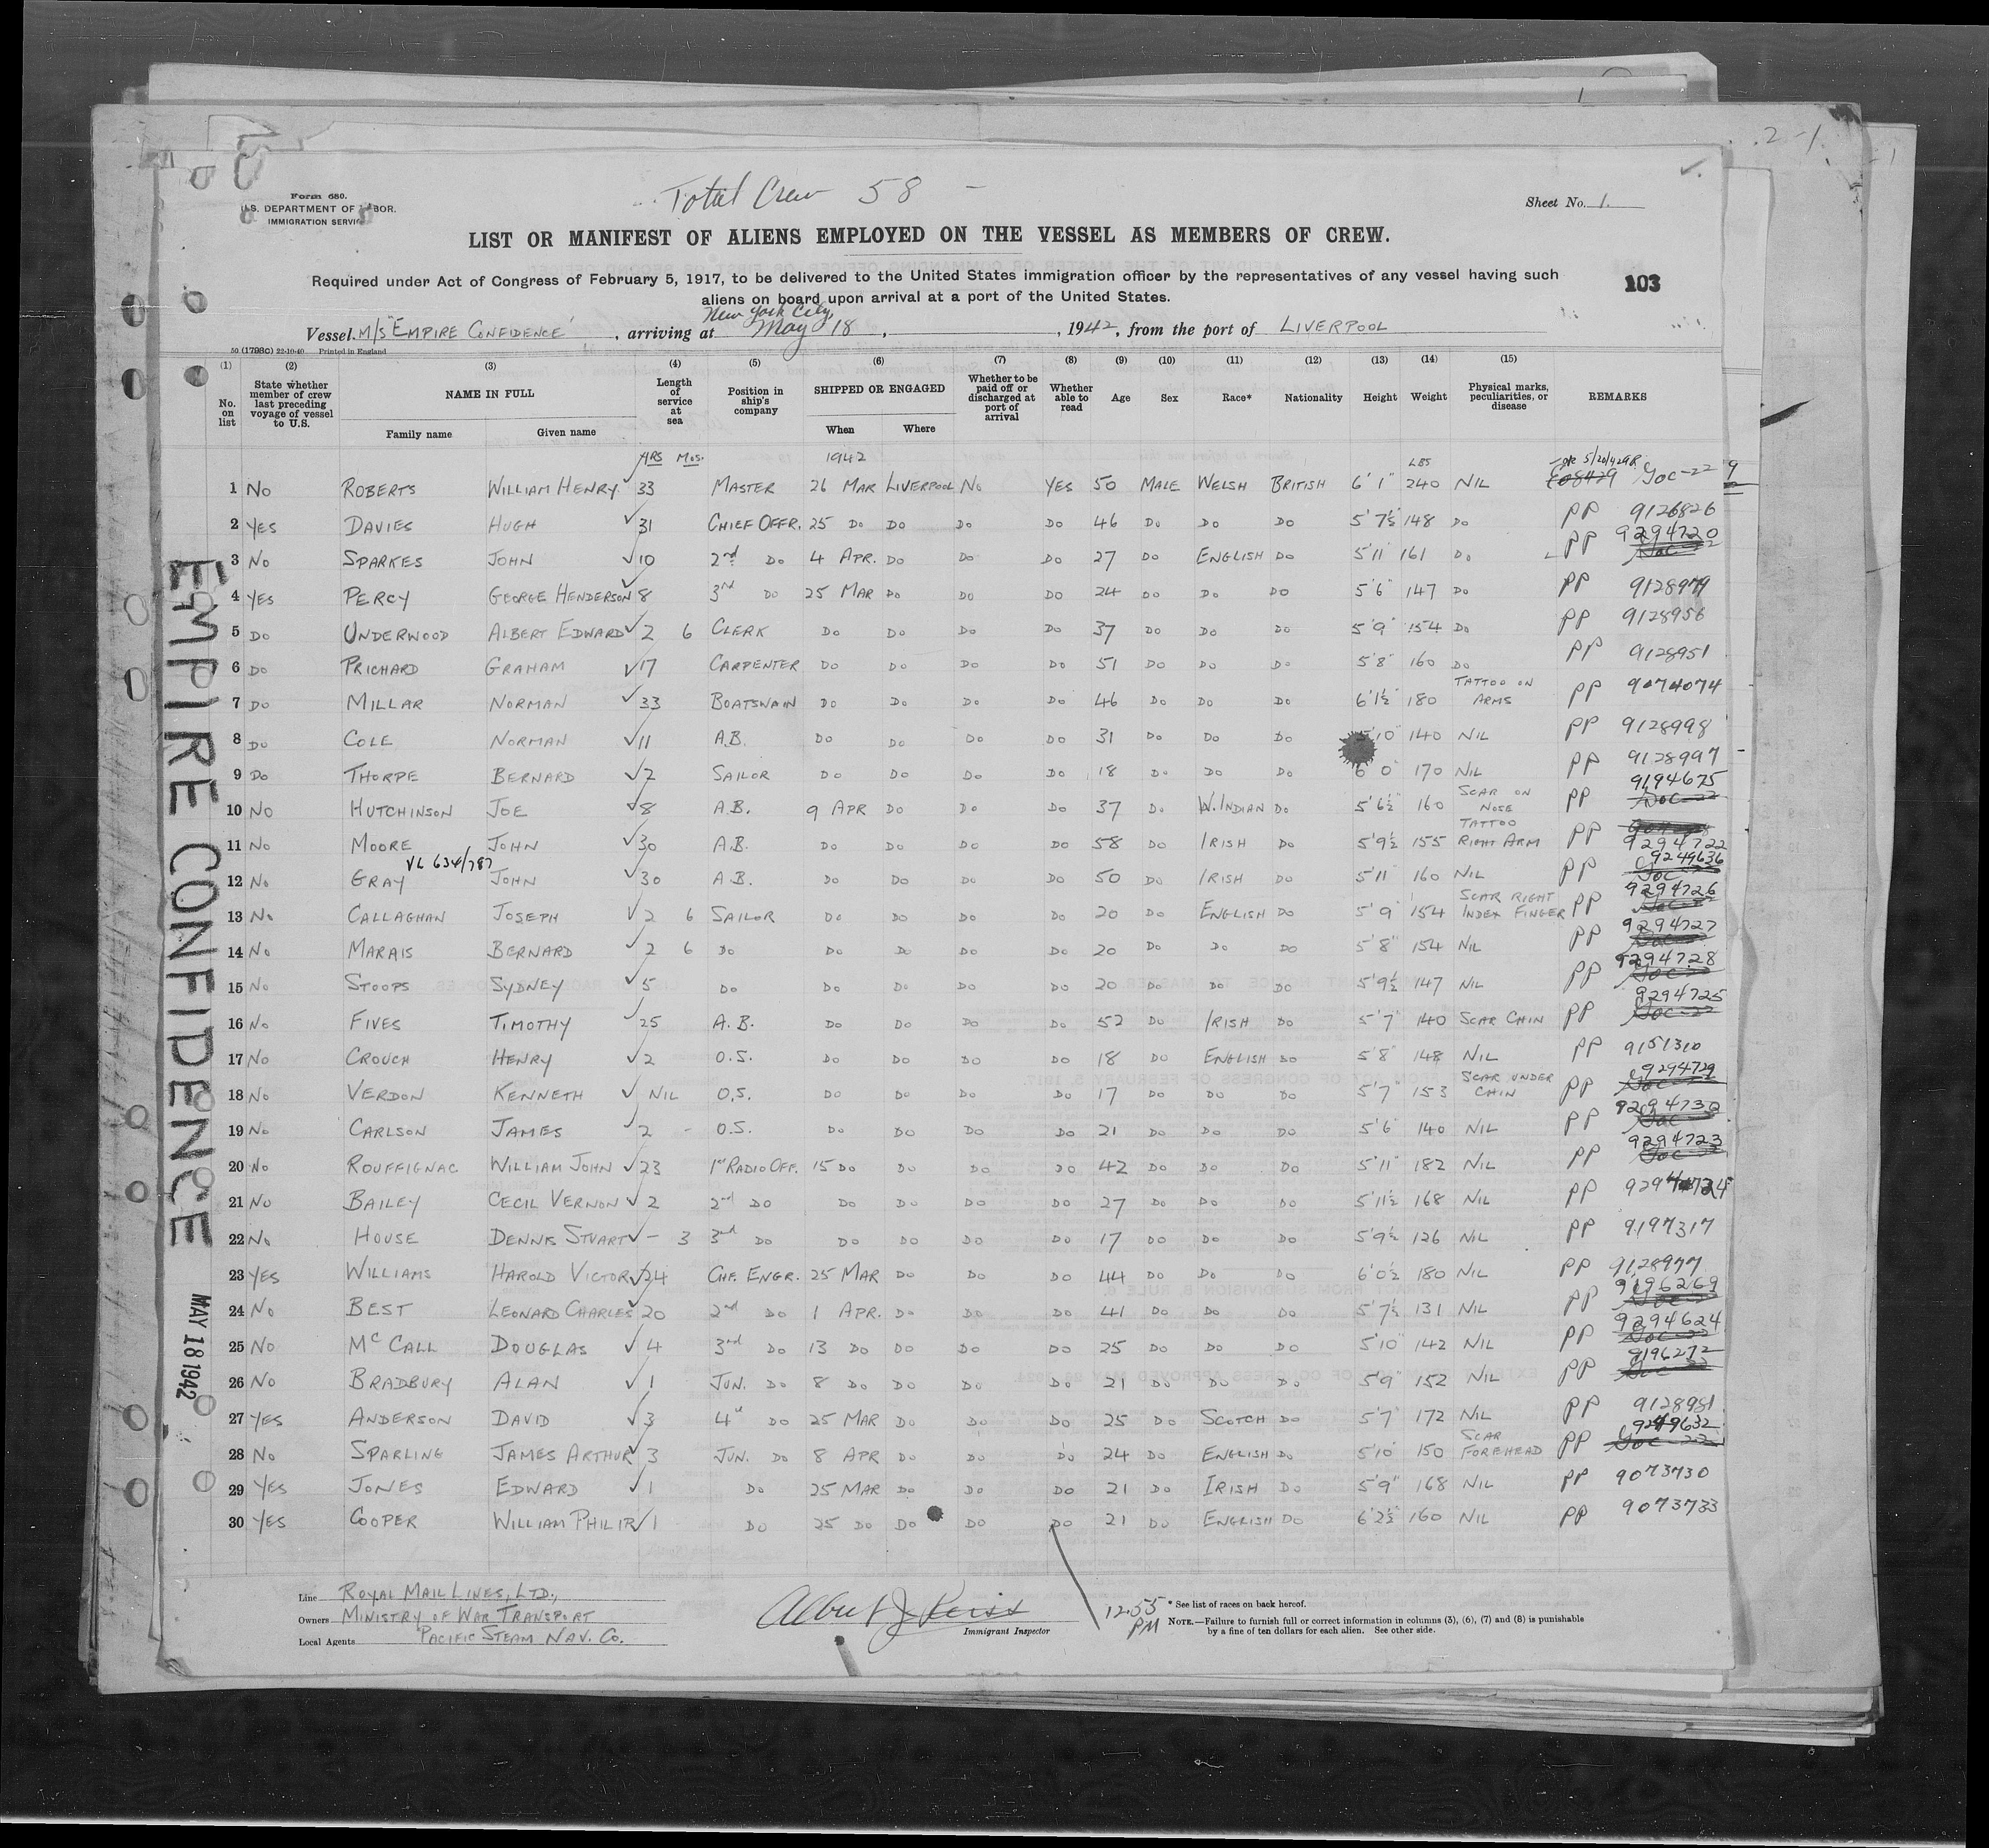 Total Crew 58 -
Form 680.
U.S. DEPARTMENT OF LABOR.
IMMIGRATION SERVICE
Sheet No. 1.
LIST OR MANIFEST OF ALIENS EMPLOYED ON THE VESSEL AS MEMBERS OF CREW.
Required under Act of Congress of February 5, 1917, to be delivered to the United States immigration officer by the representatives of any vessel having such
aliens on board upon arrival at a port of the United States.
103
New York City,
Vessel. M/S "EMPIRE CONFIDENCE", arriving at May 18, 1942, from the port of LIVERPOOL
50 (1798C) 22-10-40 Printed in England
(1) (2) (3) (4) (5) (6) (7) (8) (9) (10) (11) (12) (13) (14) (15)
No. on list State whether member of crew last preceding voyage of vessel to U.S. NAME IN FULL Family name Given name Length of service at sea Position in ship's company SHIPPED OR ENGAGED When Where Whether to be paid off or discharged at port of arrival Whether able to read Age Sex Race* Nationality Height Weight Physical marks, peculiarities, or disease REMARKS
YRS Mos. 1942 LBS
1 No ROBERTS WILLIAM HENRY 33 MASTER 26 MAR LIVERPOOL No YES 50 MALE WELSH BRITISH 6'1" 240 NIL
2 YES DAVIES HUGH 31 CHIEF OFFR. 25 DO DO DO DO 46 DO DO DO 5'7½ 148 DO PP 9126826
3 NO SPARKES JOHN 10 2nd DO 4 APR. DO DO DO 27 DO ENGLISH DO 5'11 161 DO PP 9294720
4 YES PERCY GEORGE HENDERSON 8 3rd DO 25 MAR DO DO DO 24 DO DO DO 5'6" 147 DO PP 9128979
5 DO UNDERWOOD ALBERT EDWARD 2 6 CLERK DO DO DO DO 37 DO DO DO 5'9" 154 DO PP 9128956
6 DO PRICHARD GRAHAM 17 CARPENTER DO DO DO DO 51 DO DO DO 5'8" 160 DO PP 9128951
7 DO MILLAR NORMAN 33 BOATSWAIN DO DO DO DO 46 DO DO DO 6'1½ 180 TATTOO ON ARMS PP 9074074
8 DO COLE NORMAN 11 A.B. DO DO DO DO 31 DO DO DO 5'10" 140 NIL PP 9128998
9 DO THORPE BERNARD 2 SAILOR DO DO DO DO 18 DO DO DO 6'0" 170 NIL PP 9128997
10 NO HUTCHINSON JOE 8 A.B. 9 APR DO DO DO 37 DO W. INDIAN DO 5'6½" 160 SCAR ON NOSE PP 9194675
11 NO MOORE JOHN 30 A.B. DO DO DO DO 58 DO IRISH DO 5'9½ 155 TATTOO RIGHT ARM PP 9294722
VL 634/787
12 NO GRAY JOHN 30 A.B. DO DO DO DO 50 DO IRISH DO 5'11" 160 NIL PP 9249636
13 NO CALLAGHAN JOSEPH 2 6 SAILOR DO DO DO DO 20 DO ENGLISH DO 5'9" 154 SCAR RIGHT INDEX FINGER PP 9294726
14 NO MARAIS BERNARD 2 6 DO DO DO DO DO 20 DO DO DO 5'8" 154 NIL PP 9294727
15 NO STOOPS SYDNEY 5 DO DO DO DO DO 20 DO DO DO 5'9½ 147 NIL PP 9294728
16 NO FIVES TIMOTHY 25 A.B. DO DO DO DO 52 DO IRISH DO 5'7" 140 SCAR CHIN PP 9294725
17 NO CROUCH HENRY 2 O.S. DO DO DO DO 18 DO ENGLISH DO 5'8" 148 NIL PP 9151310
18 NO VERDON KENNETH NIL O.S. DO DO DO DO 17 DO DO DO 5'7" 153 SCAR UNDER CHIN PP 9294729
19 NO CARLSON JAMES 2 - O.S. DO DO DO DO 21 DO DO DO 5'6" 140 NIL PP 9294730
20 NO ROUFFIGNAC WILLIAM JOHN 23 1st RADIO OFF. 15 DO DO DO DO 42 DO DO DO 5'11" 182 NIL PP 9294723
21 NO BAILEY CECIL VERNON 2 2nd DO DO DO DO DO 27 DO DO DO 5'11½ 168 NIL PP
22 NO HOUSE DENNIS STUART - 3 3rd DO DO DO DO DO 17 DO DO DO 5'9½ 126 NIL PP 9197317
23 YES WILLIAMS HAROLD VICTOR 24 CHF. ENGR. 25 MAR DO DO DO 44 DO DO DO 6'0½ 180 NIL PP 9128977
24 NO BEST LEONARD CHARLES 20 2nd DO 1 APR. DO DO DO 41 DO DO DO 5'7½ 131 NIL PP 9196269
25 NO McCALL DOUGLAS 4 3rd DO 13 DO DO DO DO 25 DO DO DO 5'10" 142 NIL PP 9294624
26 NO BRADBURY ALAN 1 JUN. DO 8 DO DO DO DO 21 DO DO DO 5'9" 152 NIL PP 9196272
27 YES ANDERSON DAVID 3 4th DO 25 MAR DO DO DO 25 DO SCOTCH DO 5'7" 172 NIL PP 9128981
28 NO SPARLING JAMES ARTHUR 3 JUN. DO 8 APR DO DO DO 24 DO ENGLISH DO 5'10" 150 SCAR FOREHEAD PP 9249632
29 YES JONES EDWARD 1 DO 25 MAR DO DO DO 21 DO IRISH DO 5'9" 168 NIL PP 9073730
30 YES COOPER WILLIAM PHILIP 1 DO 25 DO DO DO DO 21 DO ENGLISH DO 6'2½ 160 NIL PP 9073733
EMPIRE CONFIDENCE
MAY 18 1942
Line ROYAL MAIL LINES, LTD.,
Owners MINISTRY OF WAR TRANSPORT
Local Agents PACIFIC STEAM NAV. CO.
Immigrant Inspector
12.55 PM
* See list of races on back hereof.
NOTE.—Failure to furnish full or correct information in columns (3), (6), (7) and (8) is punishable
by a fine of ten dollars for each alien. See other side.